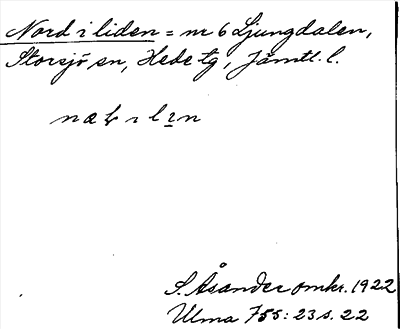 Nord i liden = nr 6 Ljungdalen,
Storsjö sn, Hede tg, Jämtl. l.
S. Åsander omkr. 1922
Ulma 755: 23 s. 22